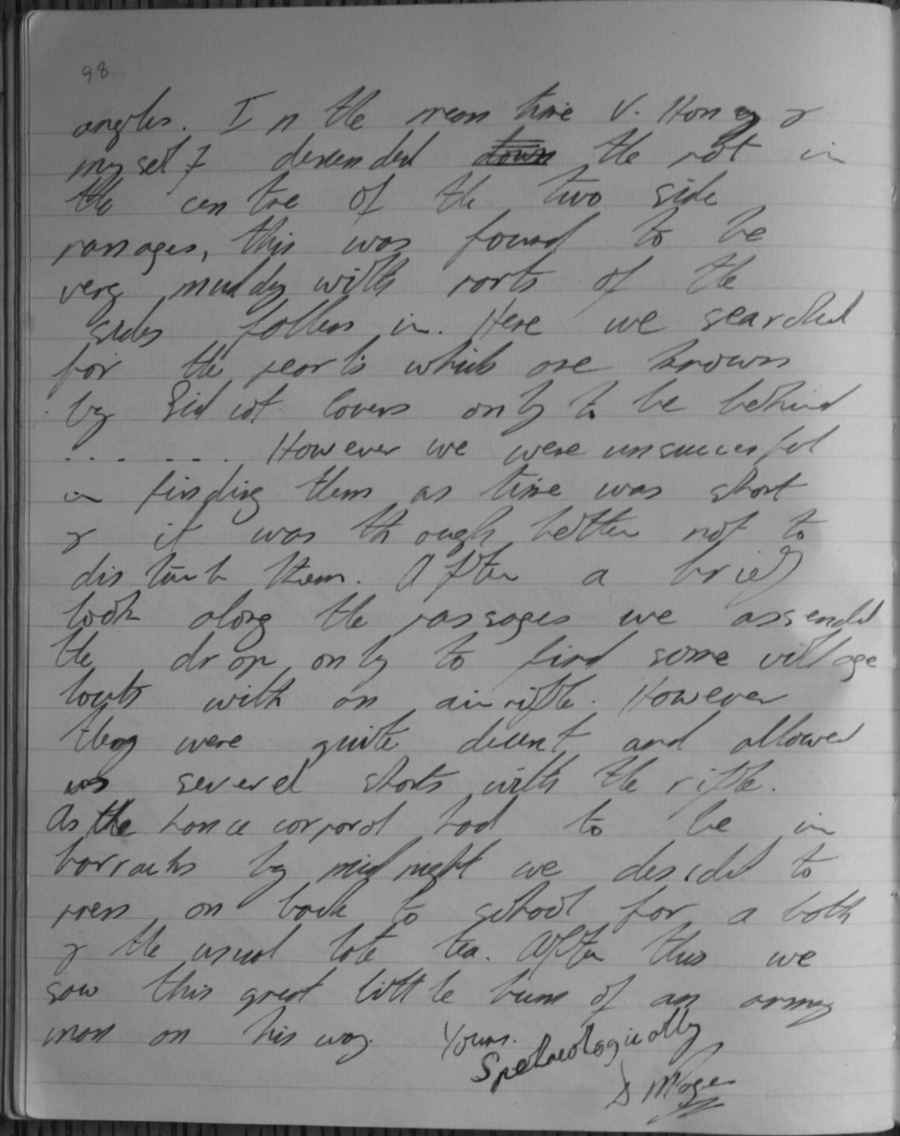 98
angles. In the mean time V. Honey &
myself descended down the pot in
the centre of the two side
passages, this was found to be
very muddy with parts of the
sides fallen in. Here we searched
for the pearls which are known
by Sidcot cavers only to be behind
. . . . . . . However we were unsuccessful
in finding them as time was short
& it was though better not to
disturb them. After a brief
look along the passages we assended
the drop only to find some village
louts with an air rifle. However
they were quite decent and allowed
us several shots with the rifle.
As the lance corporal had to be in
barracks by midnight we decided to
press on back to school for a bath
& the usual late tea. After this we
saw this great little bum of an army
man on his way. Yours.
Spelaeologically